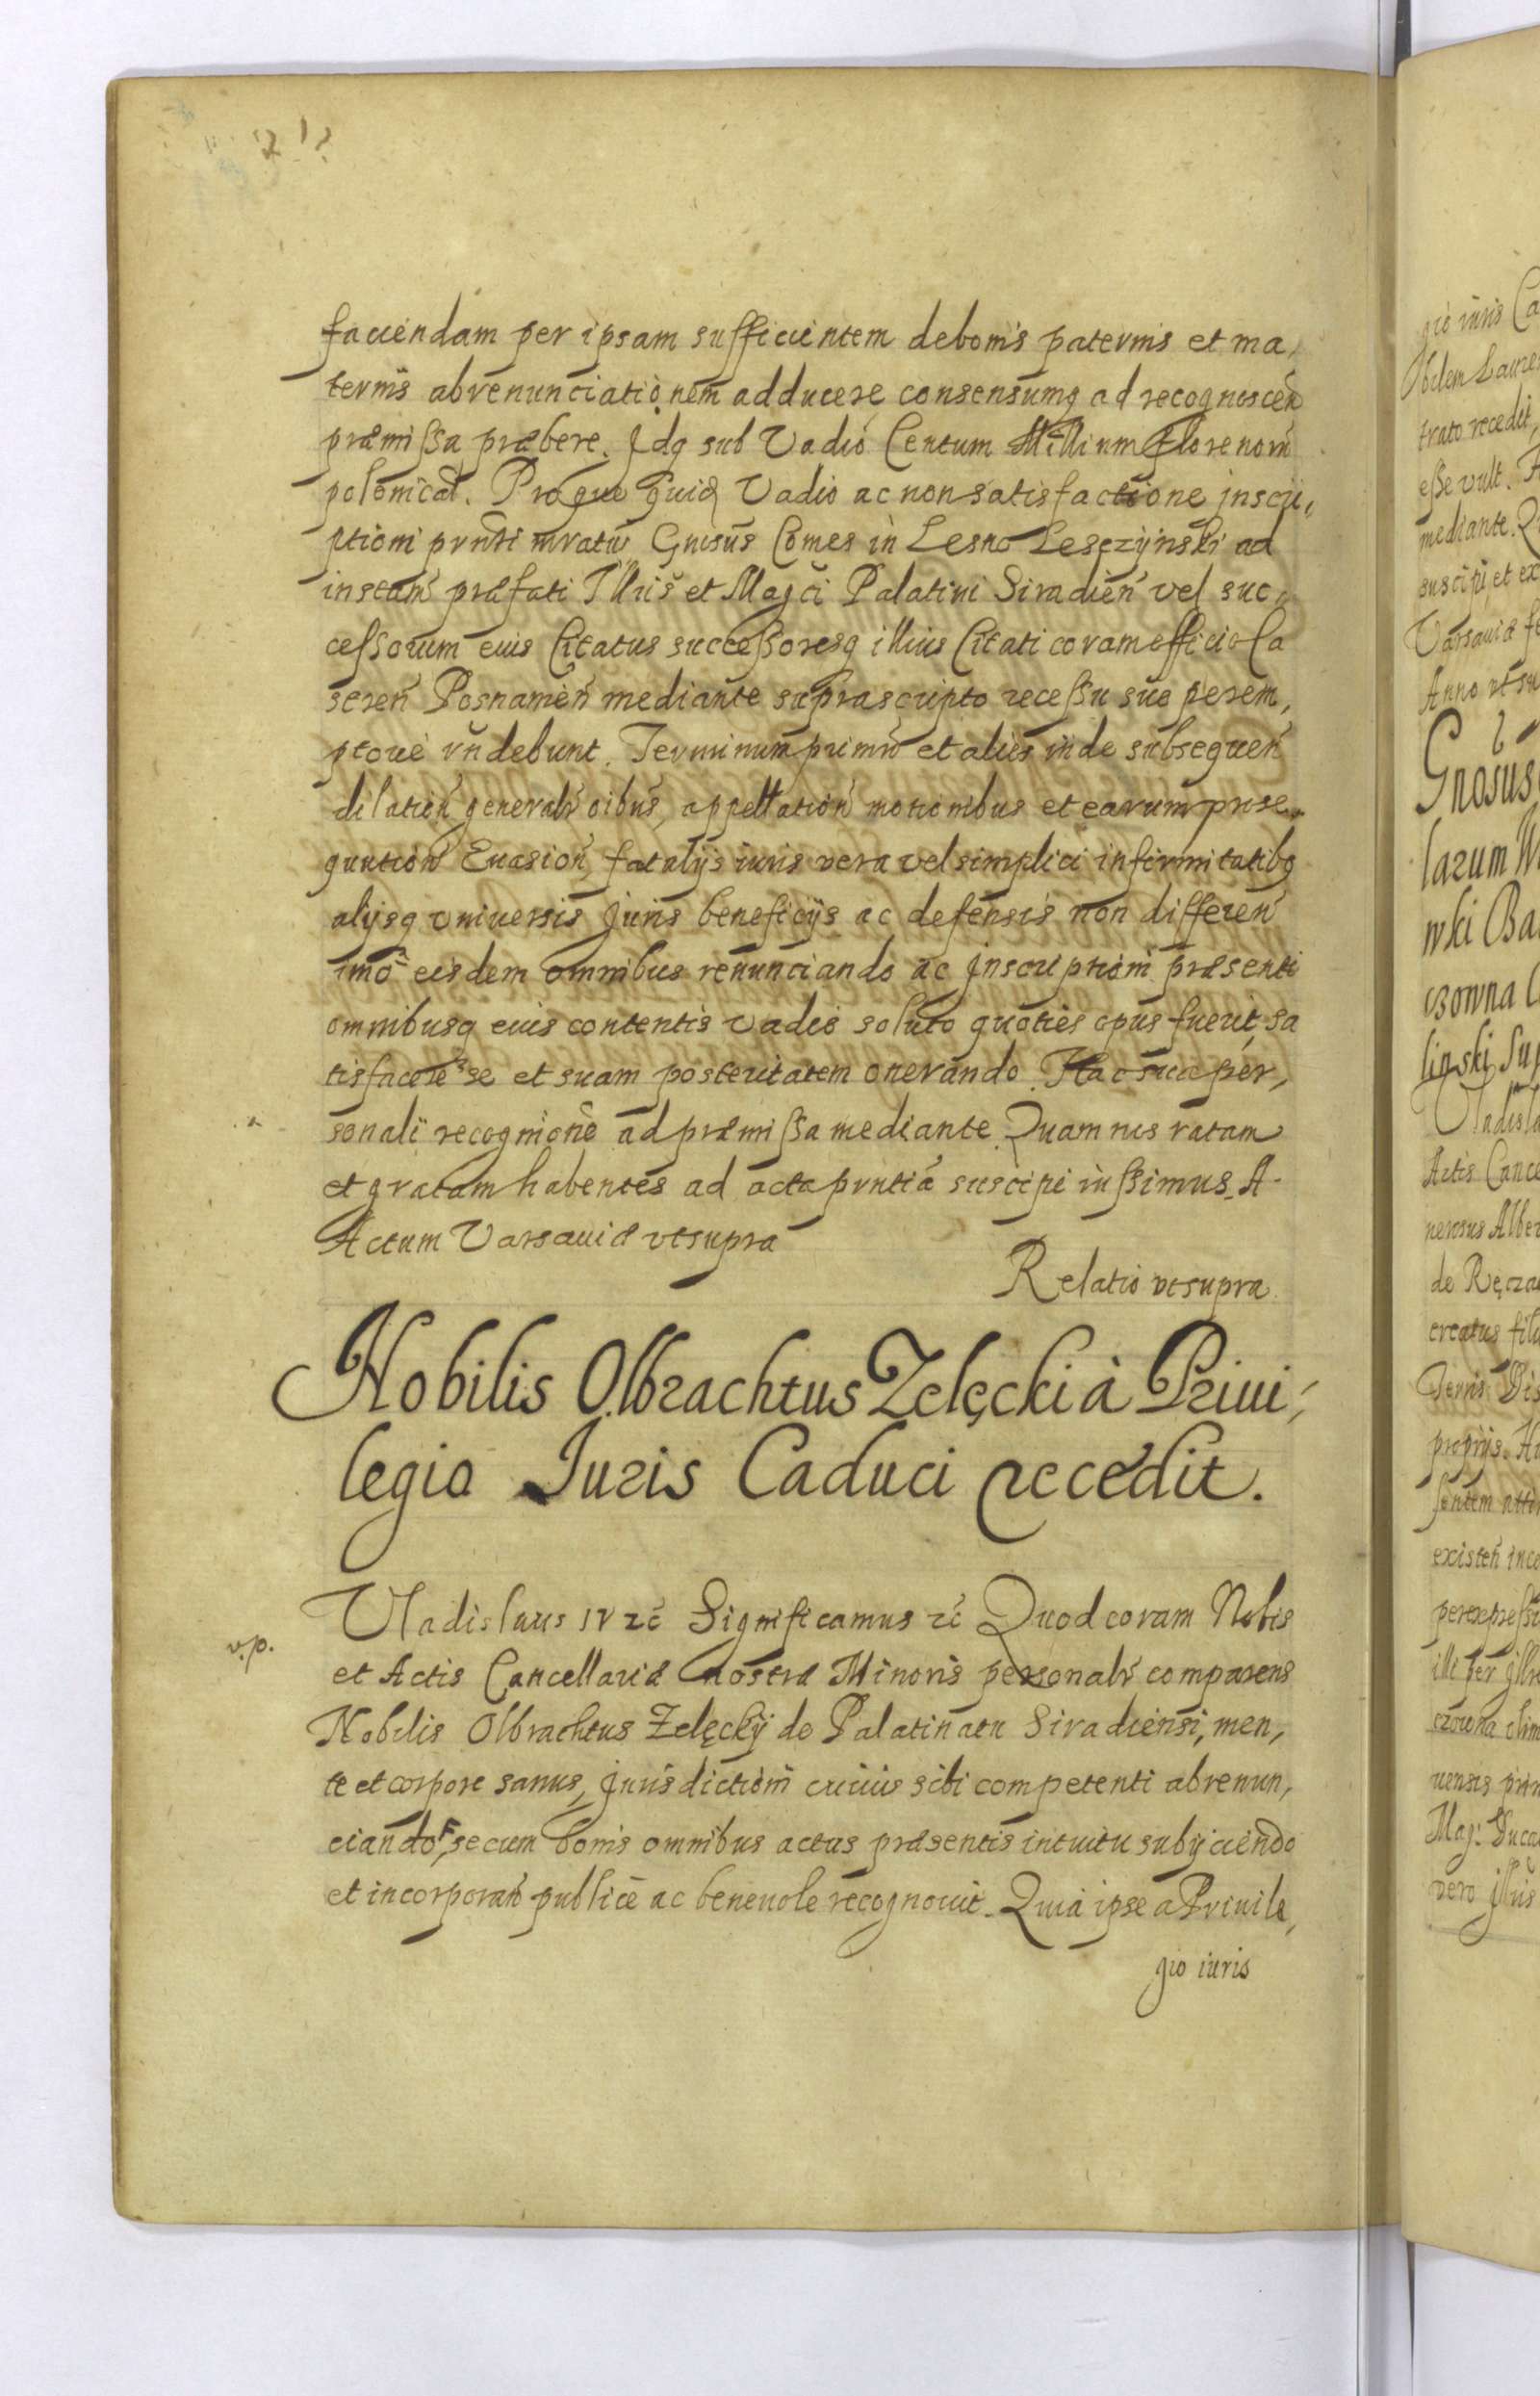 faciendam per ipsam sufficientem de bonis paternis et ma,
ternis abrenunciationem adducere consensumq ad recognoscen
præmissa præbere. Idq sub Vadio Centum Millium Florenorũ
polonical. Pro quo quid Vadio ac non satisfactione inscri,
ptioni pvnti Gnosus Comes in Lesno Lesczÿnski ad
instam præfati Illris et Magci Palatini Siradień vel suc,
cessorum eius Citatus successoresq illius Citati coram officio Ca
streń Posnanień mediante suprascripto recessu suo perem,
ptorie rñdebunt. Terminum primũ et alios inde subsequeń
dilatioń generalr oibus, appellatioń motionibus et earum prose,
quution Euasioń fatalijs iuris vera vel simplici infirmitatibq
alijsq vniuersis Juris beneficijs ac defensis non differeń
imo eisdem omnibus renunciando ac Inscriptioni præsenti
omnibusq eius contentis vadio soluto quoties opus fuerit, sa
tisfacere se et suam posteritatem onerando. Hac sua per,
sonali recognione ad præmissa mediante. Quam nos ratam
et gratam habentes ad acta pvntia suscipi iussimus. A
Actum Varsauiæ vt supra
Relatio vt supra.
Nobilis Olbrachtus Zelęcki à Priui,
legio Iuris Caduci recedit.
Vladislaus IV zc Significamus zc Quod coram Nobis
v.p.
et Actis Cancellariæ nostræ Minoris personalr comparens
Nobilis Olbrachtus Zelęckÿ de Palatinatu Siradiensi, men,
te et corpore sanus, Jurisdictioni cuiuis sibi competenti abrenun,
ciando, se cum bonis omnibus actus præsentis intuitu subijciendo
et incorporań publicè ac beneuole recognouit. Quia ipse a Priuile,
gio iuris